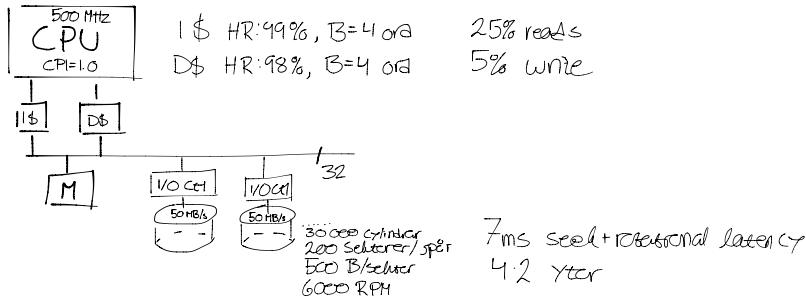 500 MHz
CPU
CPI=1.0
I$ HR:99%, B=4 ord 25% reads
D$ HR:98%, B=4 ord 5% write
I$
D$
32
M
I/O Ctrl
I/O Ctrl
50 MB/s
50 MB/s
30000 cylindrar
200 sektorer/spår
500 B/sektor
6000 RPM
7ms seek+rotational latency
4·2 ytor